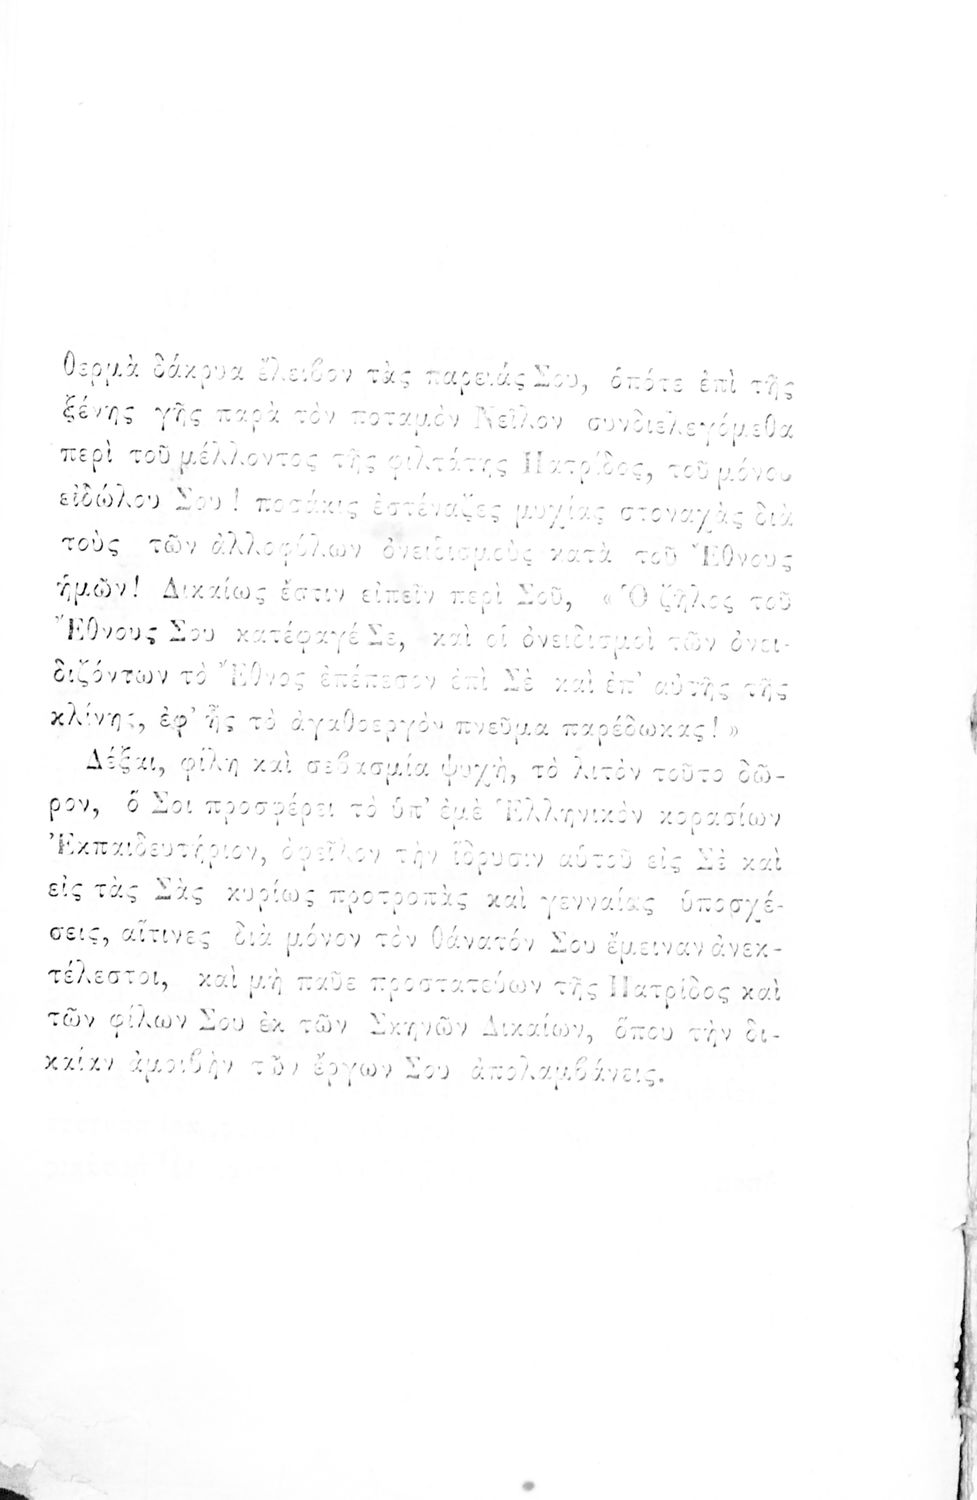 θερμὰ δάκρυα ἔλειβον τὰς παρειάς Σου, ὁπότε ἐπὶ τῆς
ξένης γῆς παρὰ τὸν ποταμὸν Νεῖλον συνδιελεγόμεθα
περὶ τοῦ μέλλοντος τῆς φιλτάτης Πατρίδος, τοῦ μόνου
εἰδώλου Σου! ποσάκις ἐστέναζες μυχίας στοναχὰς διὰ
τοὺς τῶν ἀλλοφύλων ὀνειδισμοὺς κατὰ τοῦ Ἔθνους
ἡμῶν! Δικαίως ἔστιν εἰπεῖν περὶ Σοῦ, «Ὁ ζῆλος τοῦ
Ἔθνους Σου κατέφαγέ Σε, καὶ οἱ ὀνειδισμοὶ τῶν ὀνει-
διζόντων τὸ Ἔθνος ἐπέπεσον ἐπὶ Σὲ καὶ ἐπ’ αὐτῆς τῆς
κλίνης, ἐφ’ ἧς τὸ ἀγαθοεργὸν πνεῦμα παρέδωκας!»
Δέξαι, φίλη καὶ σεβασμία ψυχὴ, τὸ λιτὸν τοῦτο δῶ-
ρον, ὅ Σοι προσφέρει τὸ ὑπ’ ἐμὲ Ἑλληνικὸν κορασίων
Ἐκπαιδευτήριον, ὀφεῖλον τὴν ἵδρυσιν αὑτοῦ εἰς Σὲ καὶ
εἰς τὰς Σὰς κυρίως προτροπὰς καὶ γενναίας ὑποσχέ-
σεις, αἵτινες διὰ μόνον τὸν θάνατόν Σου ἔμειναν ἀνεκ-
τέλεστοι, καὶ μὴ παῦε προστατεύων τῆς Πατρίδος καὶ
τῶν φίλων Σου ἐκ τῶν Σκηνῶν Δικαίων, ὅπου τὴν δι-
καίαν ἀμοιβὴν τῶν ἔργων Σου ἀπολαμβάνεις.